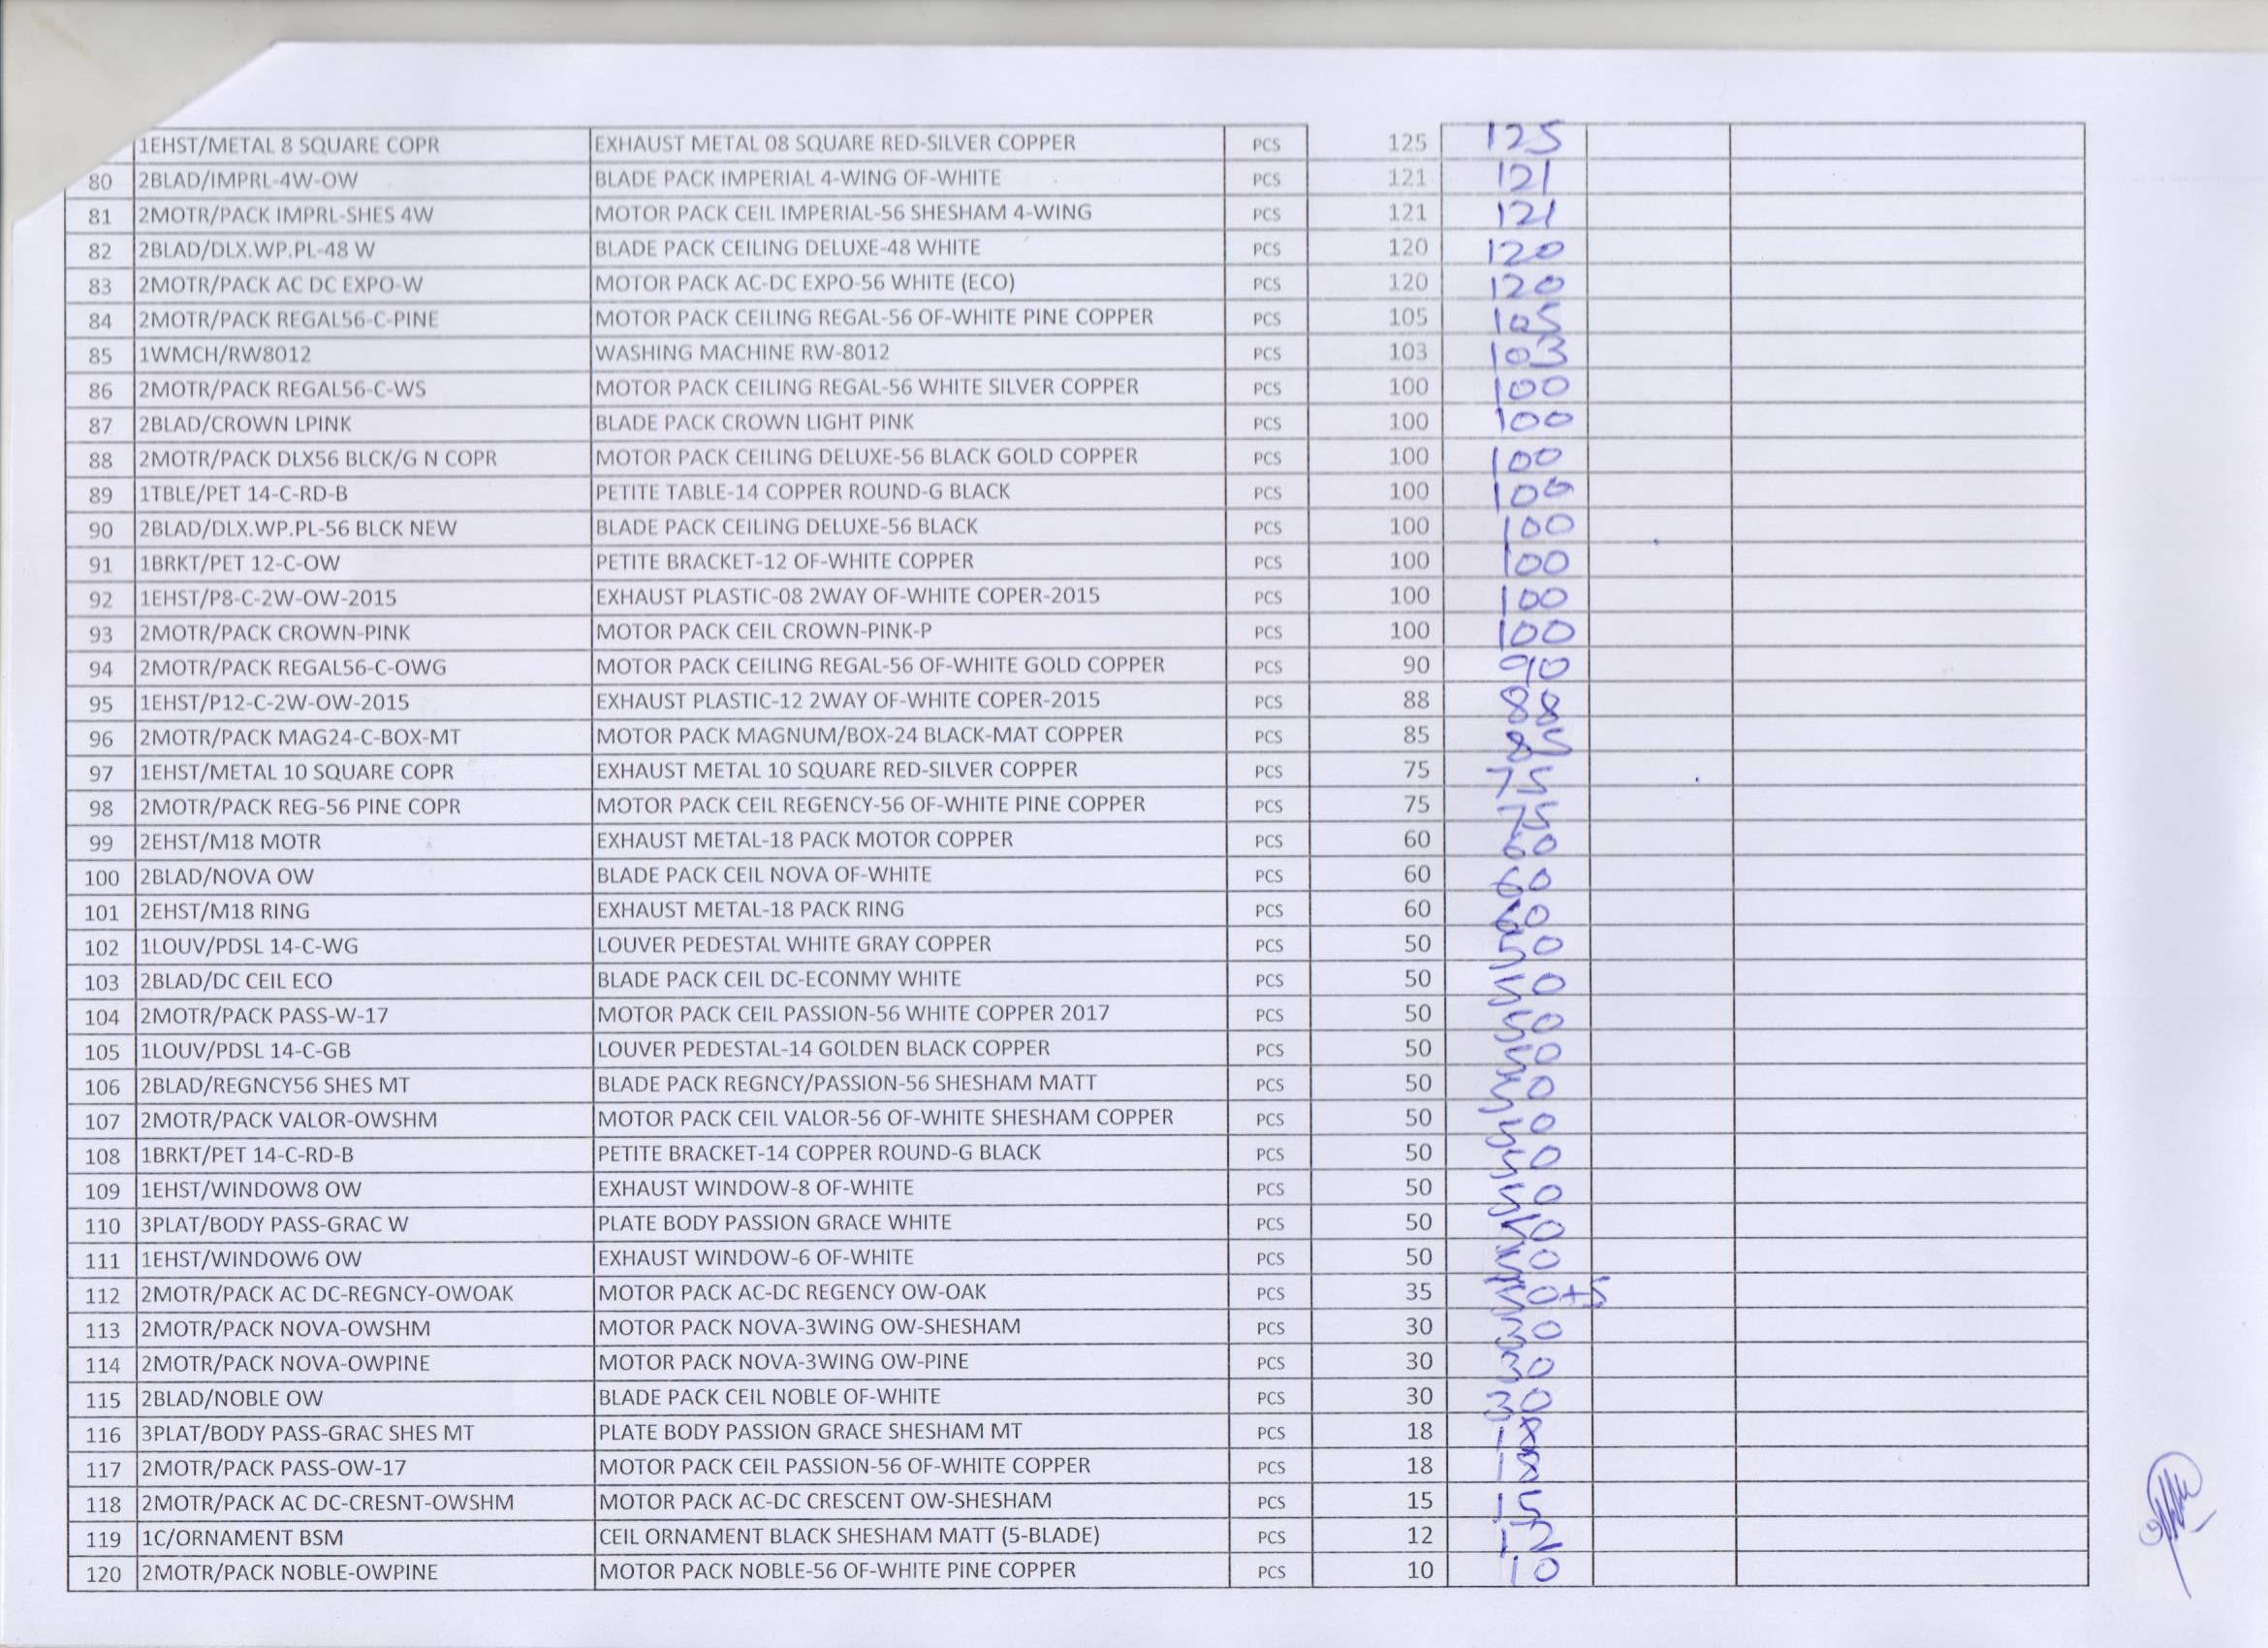 1EHST/METAL 8 SQUARE COPR EXHAUST METAL 08 SQUARE RED-SILVER COPPER PCS 125 125
80 2BLAD/IMPRL-4W-OW BLADE PACK IMPERIAL 4-WING OF-WHITE PCS 121 121
81 2MOTR/PACK IMPRL-SHES 4W MOTOR PACK CEIL IMPERIAL-56 SHESHAM 4-WING PCS 121 121
82 2BLAD/DLX.WP.PL-48 W BLADE PACK CEILING DELUXE-48 WHITE PCS 120 120
83 2MOTR/PACK AC DC EXPO-W MOTOR PACK AC-DC EXPO-56 WHITE (ECO) PCS 120 120
84 2MOTR/PACK REGAL56-C-PINE MOTOR PACK CEILING REGAL-56 OF-WHITE PINE COPPER PCS 105 105
85 1WMCH/RW8012 WASHING MACHINE RW-8012 PCS 103 103
86 2MOTR/PACK REGAL56-C-WS MOTOR PACK CEILING REGAL-56 WHITE SILVER COPPER PCS 100 100
87 2BLAD/CROWN LPINK BLADE PACK CROWN LIGHT PINK PCS 100 100
88 2MOTR/PACK DLX56 BLCK/G N COPR MOTOR PACK CEILING DELUXE-56 BLACK GOLD COPPER PCS 100 100
89 1TBLE/PET 14-C-RD-B PETITE TABLE-14 COPPER ROUND-G BLACK PCS 100 100
90 2BLAD/DLX.WP.PL-56 BLCK NEW BLADE PACK CEILING DELUXE-56 BLACK PCS 100 100
91 1BRKT/PET 12-C-OW PETITE BRACKET-12 OF-WHITE COPPER PCS 100 100
92 1EHST/P8-C-2W-OW-2015 EXHAUST PLASTIC-08 2WAY OF-WHITE COPER-2015 PCS 100 100
93 2MOTR/PACK CROWN-PINK MOTOR PACK CEIL CROWN-PINK-P PCS 100 100
94 2MOTR/PACK REGAL56-C-OWG MOTOR PACK CEILING REGAL-56 OF-WHITE GOLD COPPER PCS 90 90
95 1EHST/P12-C-2W-OW-2015 EXHAUST PLASTIC-12 2WAY OF-WHITE COPER-2015 PCS 88 88
96 2MOTR/PACK MAG24-C-BOX-MT MOTOR PACK MAGNUM/BOX-24 BLACK-MAT COPPER PCS 85 85
97 1EHST/METAL 10 SQUARE COPR EXHAUST METAL 10 SQUARE RED-SILVER COPPER PCS 75 75
98 2MOTR/PACK REG-56 PINE COPR MOTOR PACK CEIL REGENCY-56 OF-WHITE PINE COPPER PCS 75 75
99 2EHST/M18 MOTR EXHAUST METAL-18 PACK MOTOR COPPER PCS 60 60
100 2BLAD/NOVA OW BLADE PACK CEIL NOVA OF-WHITE PCS 60 60
101 2EHST/M18 RING EXHAUST METAL-18 PACK RING PCS 60 60
102 1LOUV/PDSL 14-C-WG LOUVER PEDESTAL WHITE GRAY COPPER PCS 50 50
103 2BLAD/DC CEIL ECO BLADE PACK CEIL DC-ECONMY WHITE PCS 50 50
104 2MOTR/PACK PASS-W-17 MOTOR PACK CEIL PASSION-56 WHITE COPPER 2017 PCS 50 50
105 1LOUV/PDSL 14-C-GB LOUVER PEDESTAL-14 GOLDEN BLACK COPPER PCS 50 50
106 2BLAD/REGNCY56 SHES MT BLADE PACK REGNCY/PASSION-56 SHESHAM MATT PCS 50 50
107 2MOTR/PACK VALOR-OWSHM MOTOR PACK CEIL VALOR-56 OF-WHITE SHESHAM COPPER PCS 50 50
108 1BRKT/PET 14-C-RD-B PETITE BRACKET-14 COPPER ROUND-G BLACK PCS 50 50
109 1EHST/WINDOW8 OW EXHAUST WINDOW-8 OF-WHITE PCS 50 50
110 3PLAT/BODY PASS-GRAC W PLATE BODY PASSION GRACE WHITE PCS 50 50
111 1EHST/WINDOW6 OW EXHAUST WINDOW-6 OF-WHITE PCS 50 50
112 2MOTR/PACK AC DC-REGNCY-OWOAK MOTOR PACK AC-DC REGENCY OW-OAK PCS 35
113 2MOTR/PACK NOVA-OWSHM MOTOR PACK NOVA-3WING OW-SHESHAM PCS 30 30
114 2MOTR/PACK NOVA-OWPINE MOTOR PACK NOVA-3WING OW-PINE PCS 30 30
115 2BLAD/NOBLE OW BLADE PACK CEIL NOBLE OF-WHITE PCS 30 30
116 3PLAT/BODY PASS-GRAC SHES MT PLATE BODY PASSION GRACE SHESHAM MT PCS 18 18
117 2MOTR/PACK PASS-OW-17 MOTOR PACK CEIL PASSION-56 OF-WHITE COPPER PCS 18 18
118 2MOTR/PACK AC DC-CRESNT-OWSHM MOTOR PACK AC-DC CRESCENT OW-SHESHAM PCS 15 15
119 1C/ORNAMENT BSM CEIL ORNAMENT BLACK SHESHAM MATT (5-BLADE) PCS 12 12
120 2MOTR/PACK NOBLE-OWPINE MOTOR PACK NOBLE-56 OF-WHITE PINE COPPER PCS 10 10